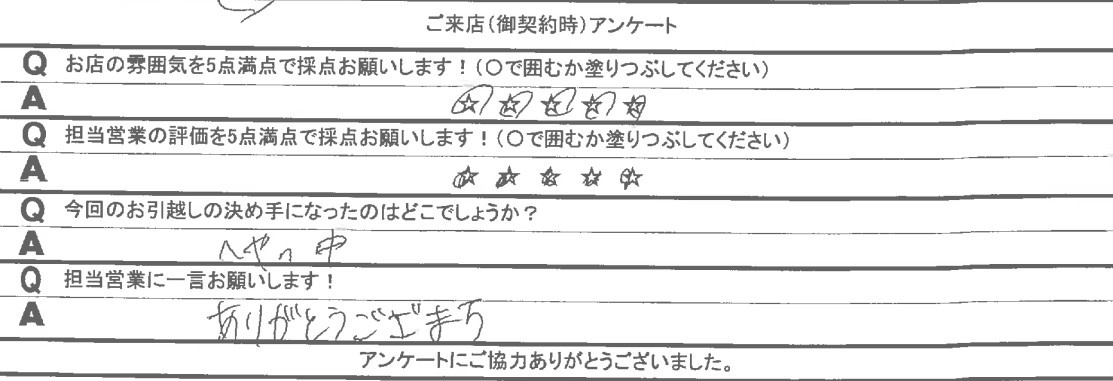 ご来店(御契約時)アンケート
Q お店の雰囲気を5点満点で採点お願いします!(〇で囲むか塗りつぶしてください)
A ☆ ☆ ☆ ☆ ☆
Q 担当営業の評価を5点満点で採点お願いします!(〇で囲むか塗りつぶしてください)
A ☆ ☆ ☆ ☆ ☆
Q 今回のお引越しの決め手になったのはどこでしょうか?
A へやの中
Q 担当営業に一言お願いします!
A ありがとうございまち
アンケートにご協力ありがとうございました。